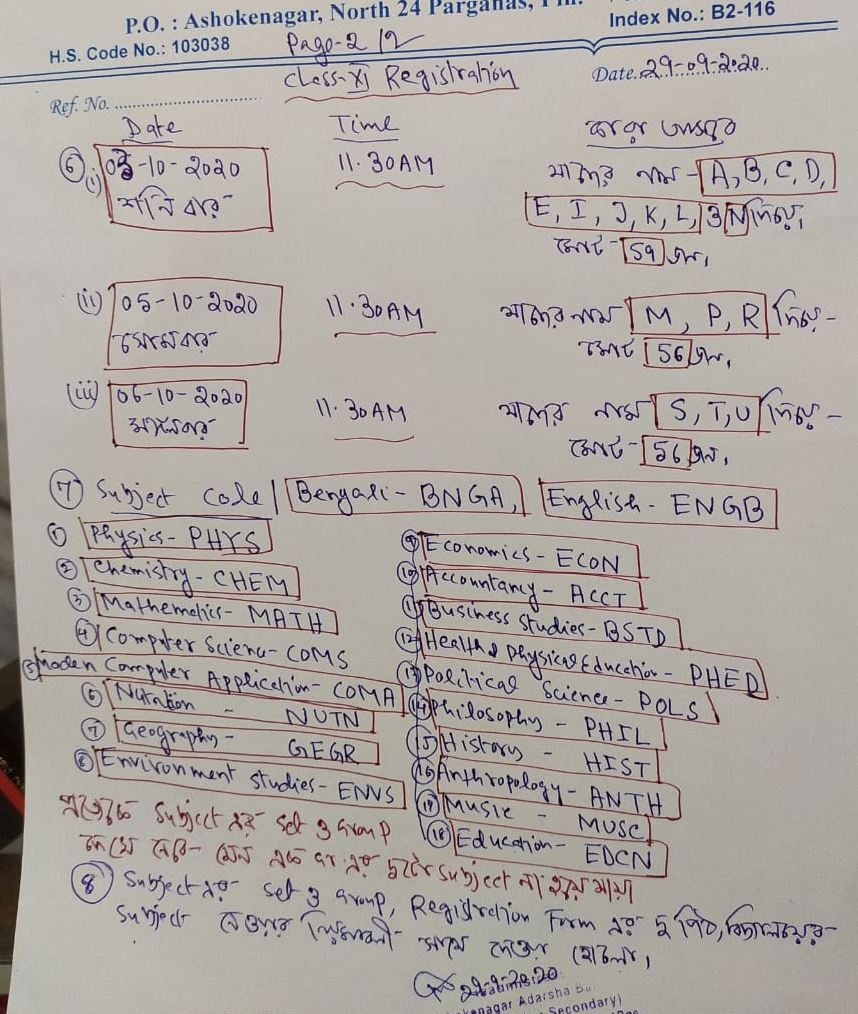 P.O. : Ashokenagar, North 24 Parganas,
H.S. Code No.: 103038
Index No.: B2-116
Page-2/2
Class-XI Registration
Date. 29-09-2020
Ref. No.
Date Time কারা আসবে
৬ (i) 03-10-2020 11.30AM যাদের নাম - A, B, C, D,
শনিবার E, I, J, K, L, ও N দিয়ে,
মোট - 59 জন,
(ii) 05-10-2020 11.30AM যাদের নাম M, P, R দিয়ে -
সোমবার মোট 56 জন,
(iii) 06-10-2020 11.30AM যাদের নাম S, T, U দিয়ে -
মঙ্গলবার মোট - 56 জন,
7 Subject code / Bengali - BNGA, English - ENGB
1 Physics - PHYS
2 Chemistry - CHEM
3 Mathematics - MATH
4 Computer Science - COMS
5 Moden Computer Application - COMA
6 Nutrition - NUTN
7 Geography - GEGR
8 Environment studies - ENVS
9 Economics - ECON
10 Accountancy - ACCT
11 Business Studies - BSTD
12 Health & Physical Education - PHED
13 Political Science - POLS
14 Philosophy - PHIL
15 History - HIST
16 Anthropology - ANTH
17 Music - MUSC
18 Education - EDCN
Subject এর set ও Group
দেখে নেবে - যেন এক এর দুটো subject না হয়ে যায়
8 Subject এর set ও Group, Registration Form এর দু পিঠ, বিদ্যালয়ের
Subject নেওয়ার নিয়মাবলী সাথে দেওয়া হোলো,
29-9-2020
Ashokenagar Adarsha
Secondary)